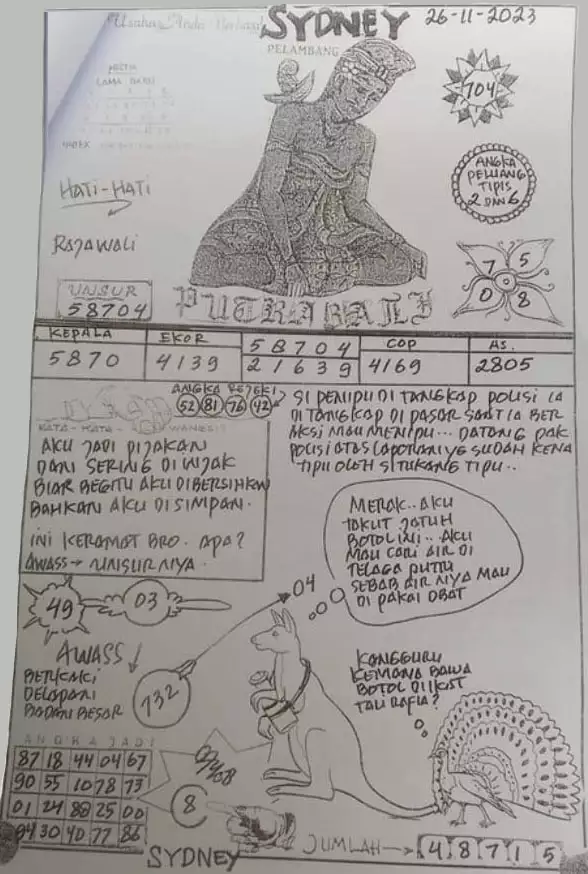 Usaha Anda Berhasil
SYDNEY
26-11-2023
PELAMBANG
LAMA BARU
INDEX
704
HATI-HATI
ANGKA
PELUANG
TIPIS
2 DAN 6
RAJAWALI
7 5
0 8
UNSUR
58704
PUTRA BALI
KEPALA
5870
EKOR
4139
58704
21639
COP
4169
AS.
2805
ANGKA REJEKI
52 81 76 42
KATA - KATA -
SI PENIPU DI TANGKAP POLISI IA
DI TANGKAP DI PASAR SAAT IA BER
AKSI MAU MENIPU... DATANG PAK
POLISI ATAS LAPORANNYE SUDAH KENA
TIPU OLEH SI TUKANG TIPU..
AKU JADI PIJAKAN
DAN SERING DI INJAK
BIAR BEGITU AKU DIBERSIHKAN
BAHKAN AKU DI SIMPAN.
INI KERAMAT BRO. APA?
AWASS → UNSURNYA.
MERAK.. AKU
TAKUT JATUH
BOTOL INI.. AKU
MAU CARI AIR DI
TELAGA PUTRI
SEBAB AIR NIYA MAU
DI PAKAI OBAT
49
03
04
AWASS
BERKAKI
DELAPAN
BADAN BESAR
732
KANGGURU
KEMANA BAWA
BOTOL DI IKAT
TALI RAFIA?
ANGKA JADI
87 18 44 04 67
90 55 10 78 73
01 24 88 25 00
94 30 40 77 86
8
JUMLAH → 4 8 7 1 5
SYDNEY